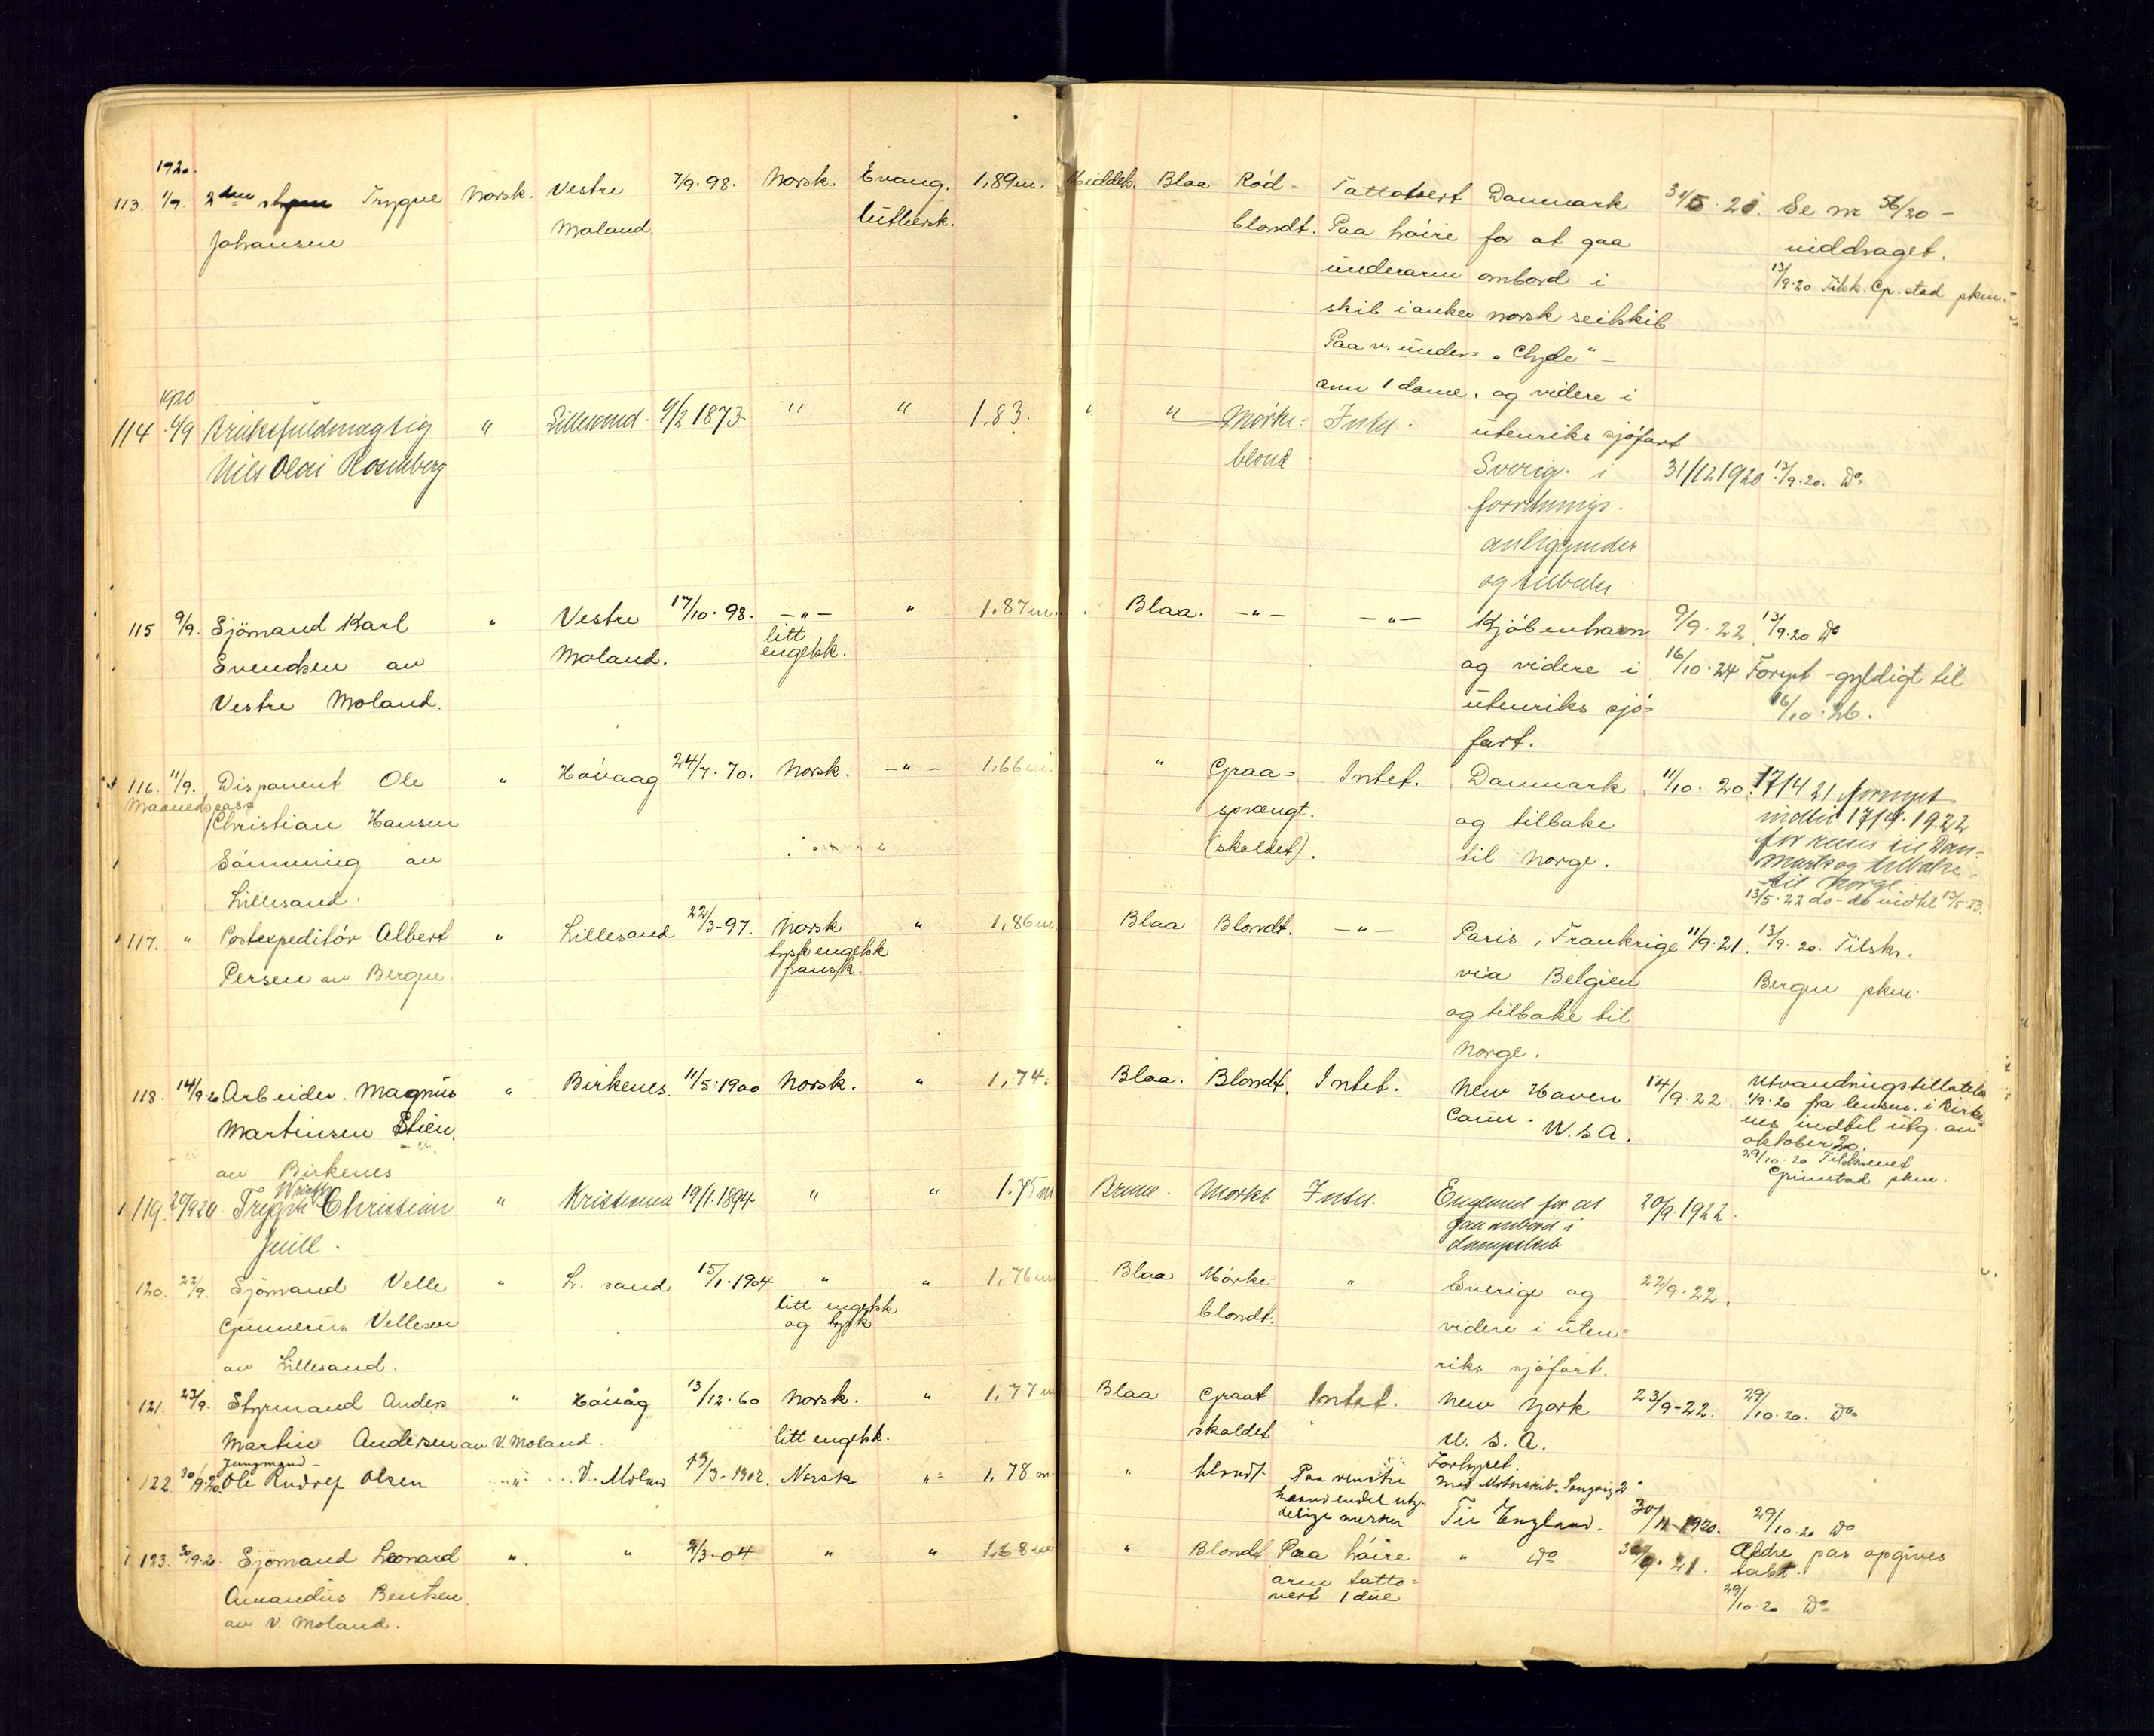 1920.
113. 1/9. 2den Trygve Norsk. Vestre 7/9.98. Norsk. Evang. 1,89m. Middels. Blaa Rød= Tattovert Danmark 31/5.21. Se nr 56/20 -
Johansen Moland. luthersk. blondt. Paa høire for at gaa inddraget.
underarm ombord i 13/9.20 Tilsk. Gr.stad pkm.
skib i anker norsk seilskib
Paa v. under= "Clyde" -
arm 1 dame. og videre i
utenriks sjøfart
1920
114 6/9 Bruksfuldmægtig " Lillesand. 1873. " " 1.83. " " Mørke= Intet. Sverig. i 31/12 1920 13/9.20. Do
Nils Olai Rosenberg blond forretnings.
anliggender
og tilbake
115 9/9. Sjømand Karl " Vestre 17/10.98. -"- " 1.87m. Blaa. -"- -"- Kjøbenhavn 9/9.22. 13/9.20 Do
Svendsen av Moland. litt engelsk. og videre i 16/10.24 Fornyet - gyldigt til
Vestre Moland. utenriks sjø= 16/10.26.
fart.
116. 11/9. Disponent Ole " Høvaag 24/7.70. Norsk. -"- 1,66m. " Graa= Intet. Danmark 11/10.20. 17/4 21 fornyet
Maanedspass Christian Hansen sprængt. og tilbake indtil 17/4.1922
Sømming av (skaldet). til Norge. for reise til Dan=
Lillesand. mark og tilbake
til Norge
13/5.22 do - do indtil 13/5.23.
117. " Postexpeditør Albert " Lillesand 22/3-97. Norsk " 1,86m Blaa Blondt. -"- Paris, Frankrige 11/9.21. 13/9.20. Tilsk.
Persen av Bergen. tysk engelsk fransk. via Belgien Bergen pkm.
og tilbake til
Norge.
118. 14/9.20 Arbeider. Magnus " Birkenes. 11/5.1900 Norsk. " 1,74. Blaa. Blondt. Intet. New Haven 14/9.22. Utvandringstillatelse
Martinsen Stien. Conn. U.S.A. 1/9.20 fra lensm. i Birke
av Birkenes nes indtil utg. av
oktober 20.
29/10.20 Tilskrevet
Grimstad pkm.
119. 20/9 20 Trygve Christian " Kristiania 19/1.1894. " " 1.75m Brune. Mørkt Intet. England for at 20/9.1922.
Juell. gaa ombord i
dampskib
120. 22/9. Sjømand Velle " L. sand 15/1.1904 " " 1,76m Blaa Mørke= " Sverige og 22/9.22.
Gunnerius Vellesen litt engelsk blondt. videre i uten=
av Lillesand. og tysk riks sjøfart.
121. 23/9. Styrmand Anders " Høvåg 13/12.60 Norsk. " 1,77m Blaa Graat Intet. New York 23/9-22. 29/10.20. Do
Martin Andersen av V. Moland. litt engelsk. skaldet U.S.A.
Jungmand Forhyret.
122 30/9.20 Ole Rudolf Olsen " V. Moland 13/3-1902. Norsk " 1,78m " blondt Paa venstre med Motorskib
haand endel uty=
delige merker Til England. 30/11 1920. 29/10.20 Do
123. 30/9.20. Sjømand Leonard " " 2/3-04 " " 1,68m " Blondt Paa høire " Do 30/9.21. Ældre pas opgives
Amandus Bentsen arm tatto= tabt.
av V. Moland. vert 1 due 29/10.20 Do